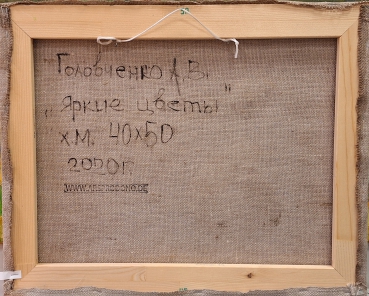 Головченко А.В.
„Яркие цветы"
х.м. 40х50
2020г.